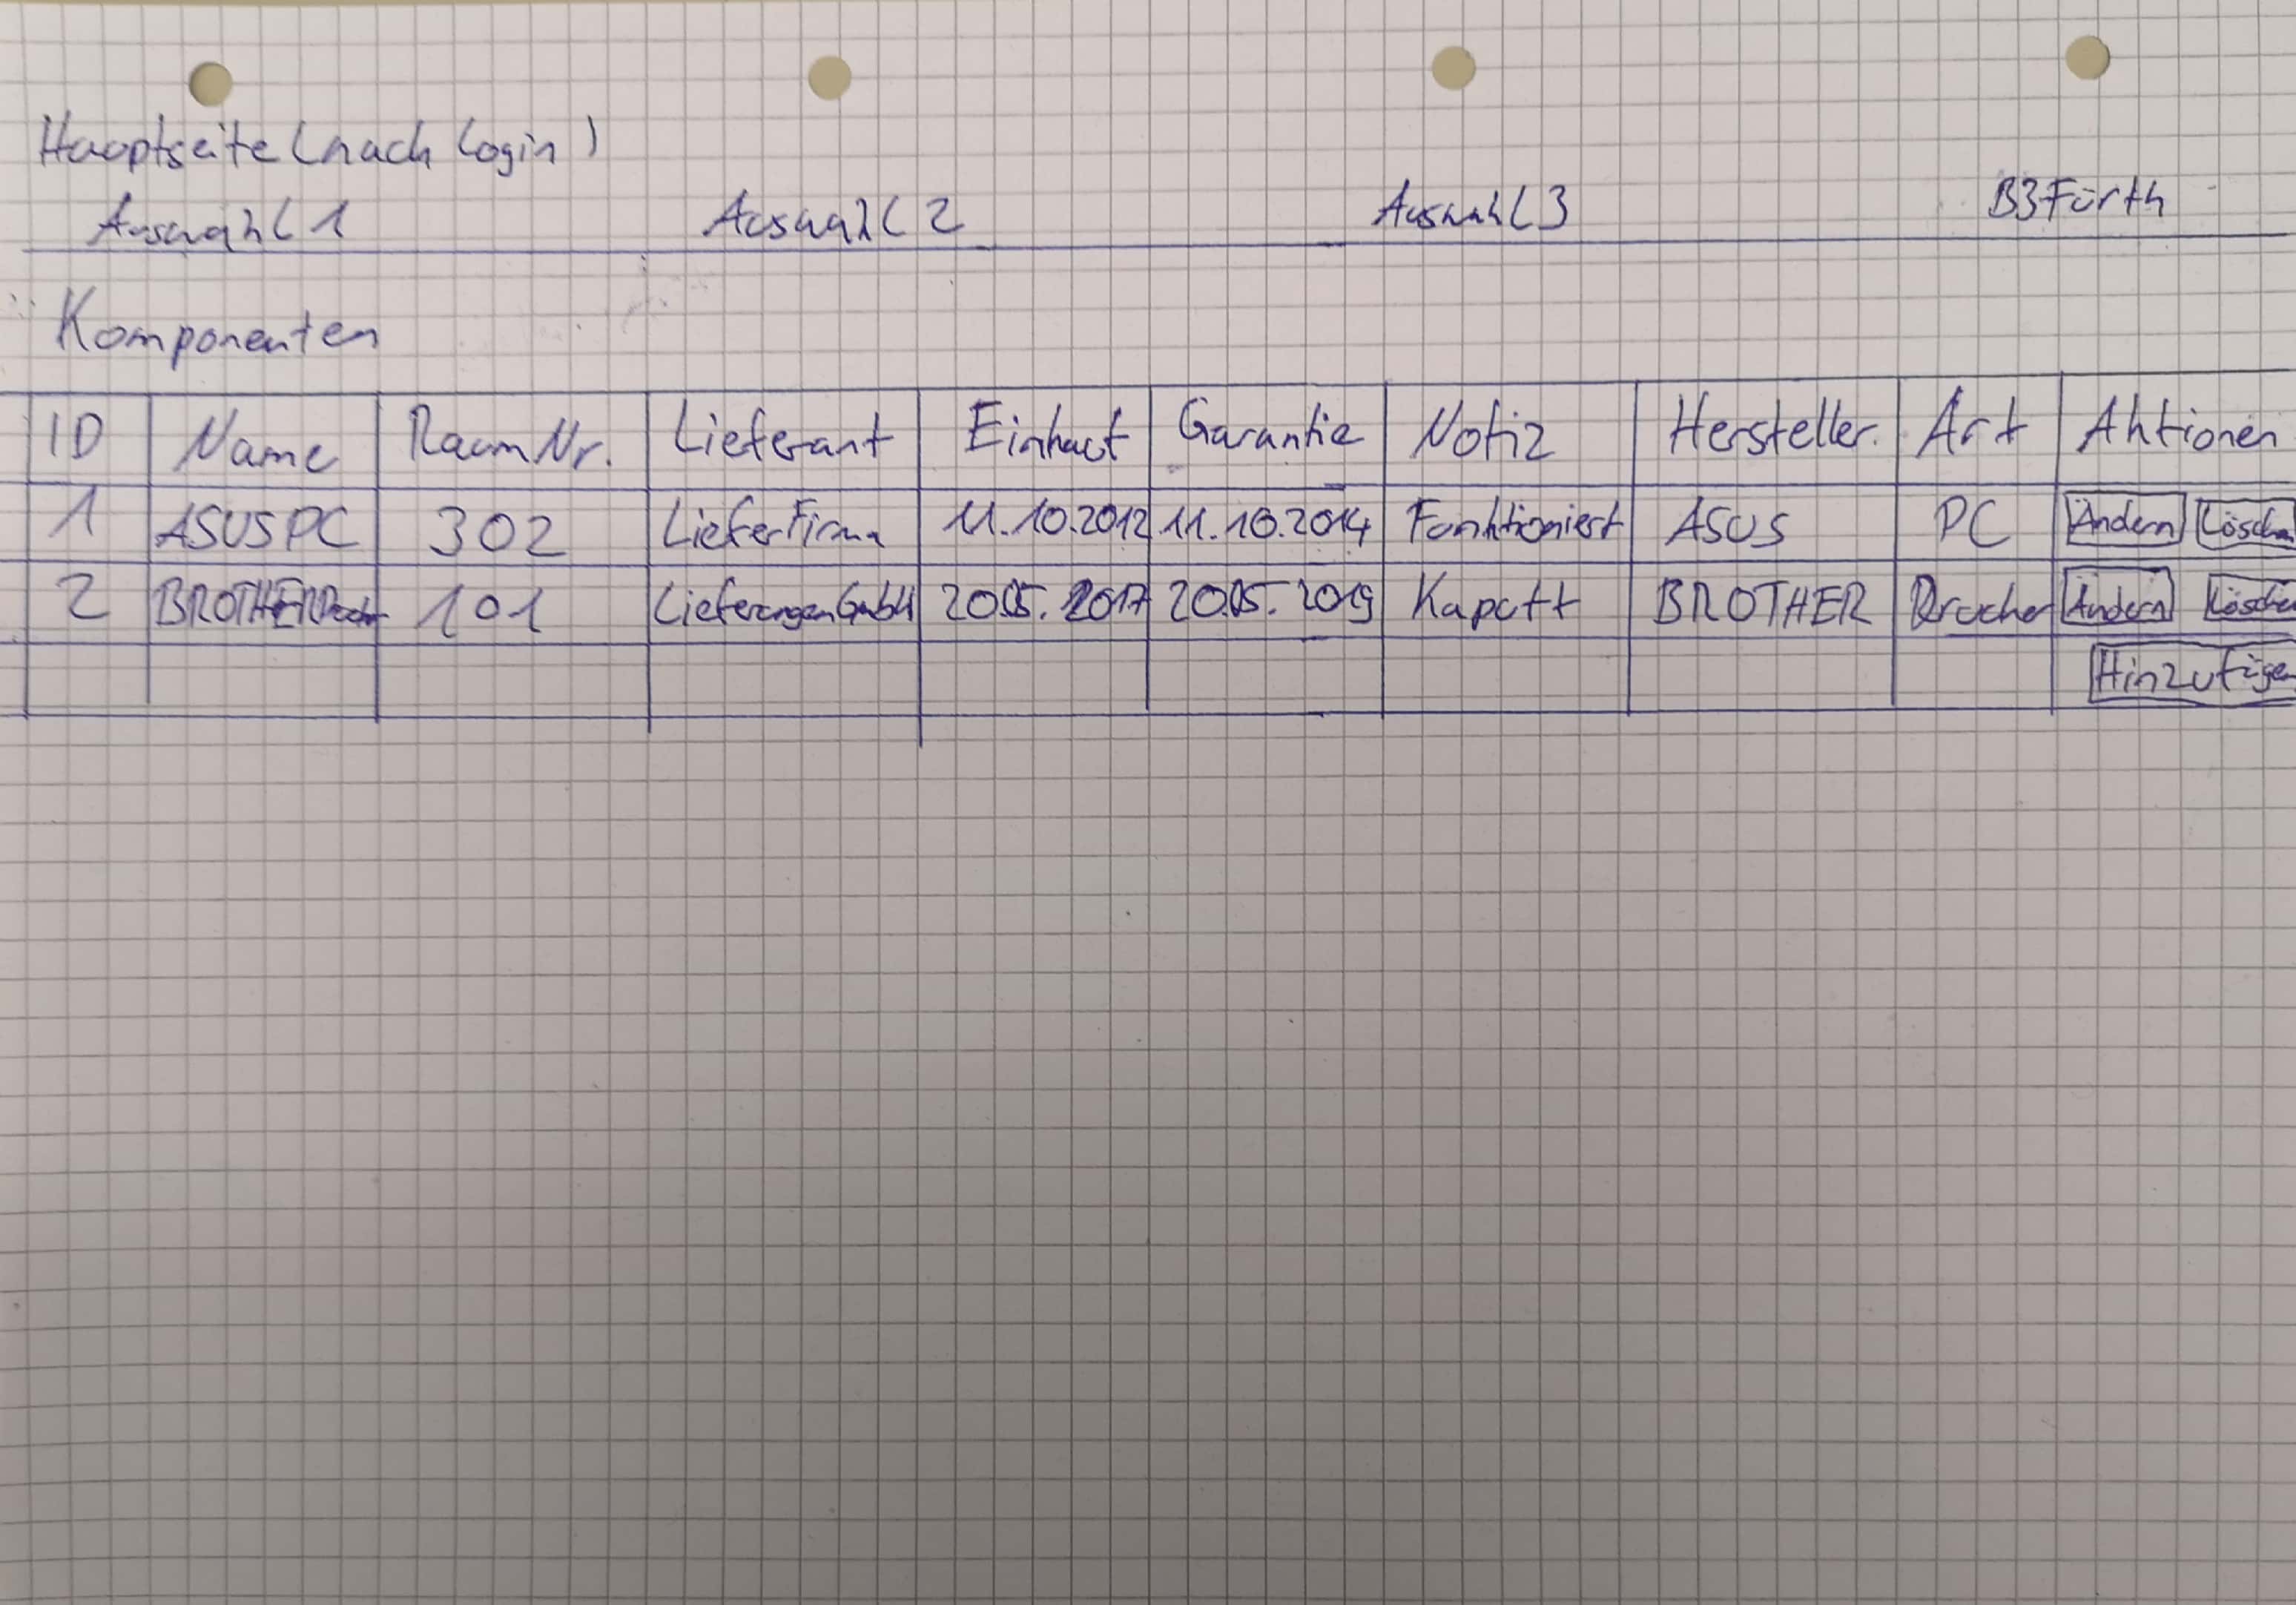 Hauptseite (nach Login)
Auswahl 1 Auswahl 2 Auswahl 3 B3Fürth
Komponenten
ID Name Raum Nr. Lieferant Einkauf Garantie Notiz Hersteller Art Aktionen
1 ASUS PC 302 LieferFirma 11.10.2012 11.10.2014 Funktioniert ASUS PC Ändern Löschen
2 BROTHER 101 Lieferungen GmbH 20.05.2017 20.05.2019 Kaputt BROTHER Drucker Ändern Löschen
Hinzufügen